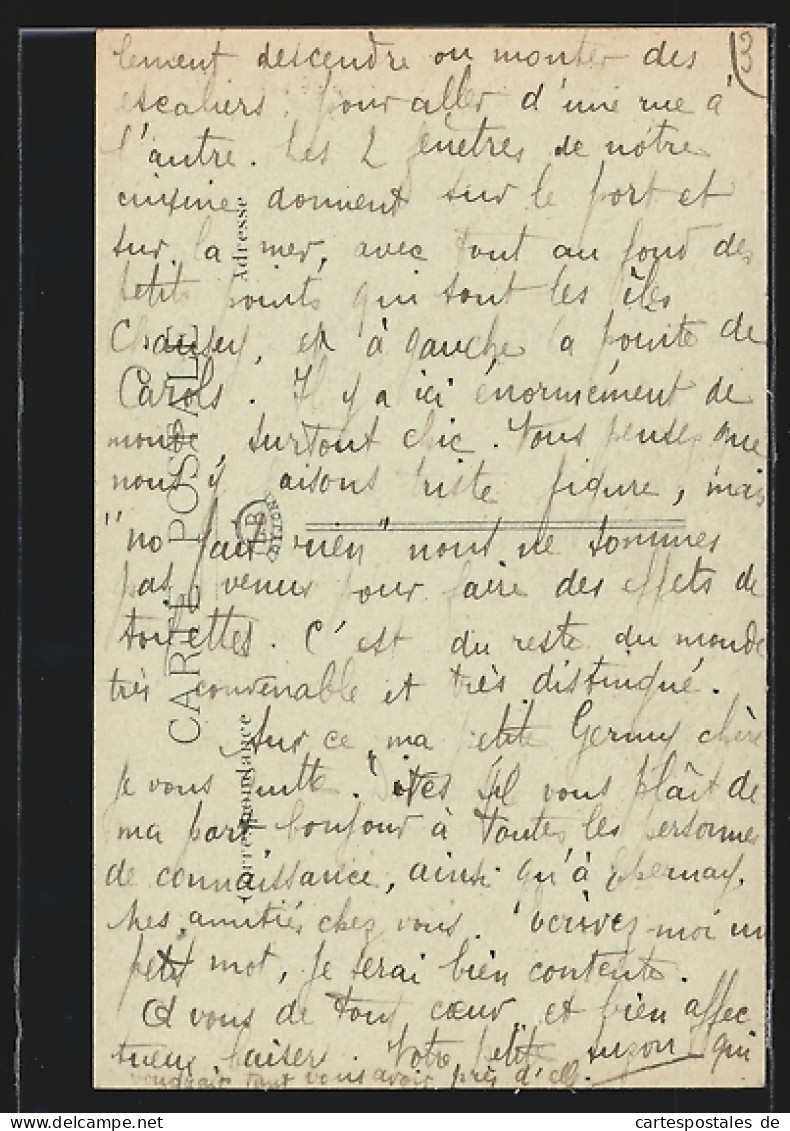 3
lement descendre ou monter des
escaliers pour aller d'une rue à
l'autre. Les 2 fenêtres de notre
cuisine donnent sur le port et
sur la mer, avec tout au fond des
petits points qui sont les îles
Chausey, et à gauche la pointe de
Carols. Il y a ici énormément de
monde, surtout chic. Vous pensez que
nous y faisons triste figure, mais
"no fait rien" nous ne sommes
pas venus pour faire des effets de
toilettes. C'est du reste du monde
très convenable et très distingué.
Sur ce, ma petite Germy chère
je vous quitte. Dites s'il vous plaît de
ma part bonjour à toutes les personnes
de connaissance, ainsi qu'à Epernay.
Mes amitiés chez vous. Ecrivez-moi un
petit mot, je serai bien contente.
A vous de tout cœur et bien affec
tueux baisers. Votre petite Suzon qui
voudrait tant vous avoir près d'elle.
CARTE POSTALE
Correspondance
Adresse
cartespostales.de